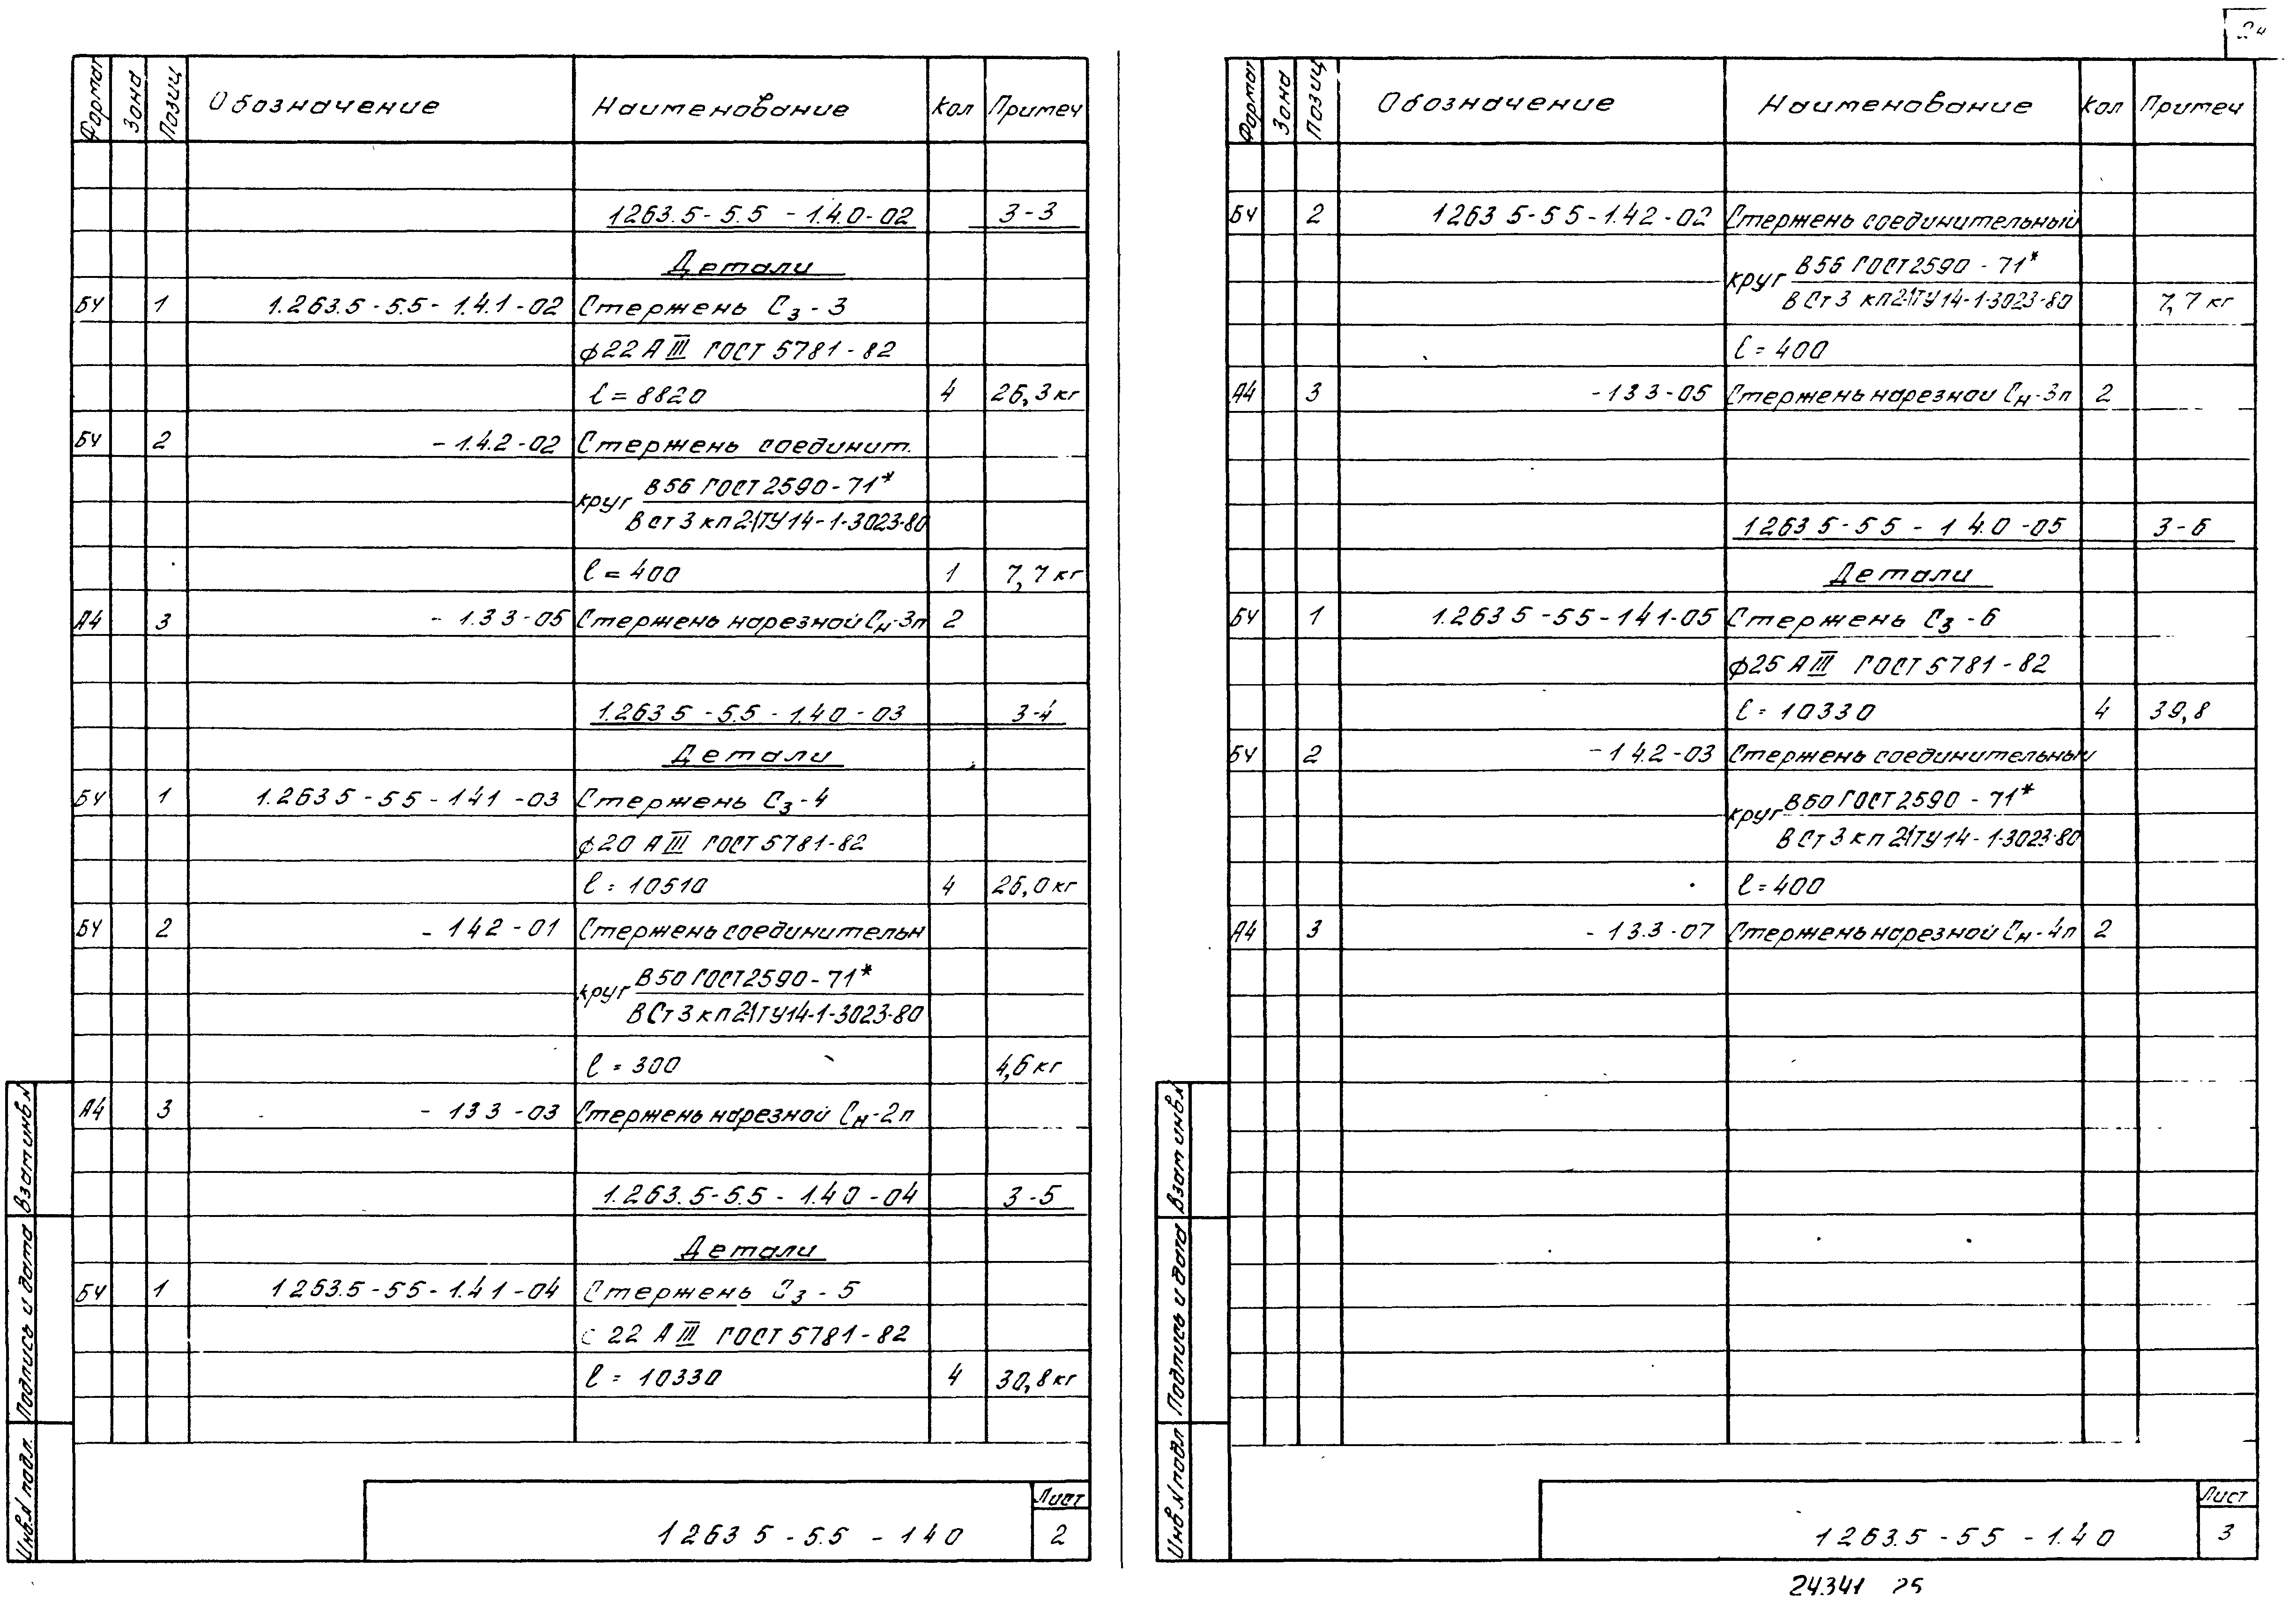 Формат Зона Позиц Обозначение Наименование Кол Примеч
1263.5-5.5-1.4.0-02 3-3
Детали
БЧ 1 1.263.5-5.5-1.4.1-02 Стержень Сз-3
ф22 А III ГОСТ 5781-82
ℓ=8820 4 26,3кг
БЧ 2 -1.4.2-02 Стержень соединит.
круг В56 ГОСТ 2590-71*
В Ст 3 кп 2-1 ТУ 14-1-3023-80
ℓ=400 1 7,7кг
А4 3 -1.3 3-05 Стержень нарезной Сн-3п 2
1.263 5-5.5-1.40-03 3-4
Детали
БЧ 1 1.263 5-55-141-03 Стержень Сз-4
ф20 А III ГОСТ 5781-82
ℓ=10510 4 26,0кг
БЧ 2 -142-01 Стержень соединительн
круг В50 ГОСТ 2590-71*
В Ст 3 кп 2-1 ТУ 14-1-3023-80
ℓ=300 4,6кг
А4 3 -133-03 Стержень нарезной Сн-2п
1.263.5-5.5-1.40-04 3-5
Детали
БЧ 1 1263.5-55-1.41-04 Стержень Сз-5
22 А III ГОСТ 5781-82
ℓ=10330 4 30,8кг
Инв.N подл. Подпись и дата Взам инв.N
1263 5-5.5-140
Лист
2
Формат Зона Позиц Обозначение Наименование Кол Примеч
БЧ 2 1263 5-55-1.42-02 Стержень соединительный
круг В56 ГОСТ 2590-71*
В Ст 3 кп 2-1 ТУ 14-1-3023-80 7,7кг
ℓ=400
А4 3 -133-05 Стержень нарезной Сн-3п 2
1263 5-55-1 4.0-05 3-6
Детали
БЧ 1 1.263 5-55-141-05 Стержень Сз-6
ф25 А III ГОСТ 5781-82
ℓ=10330 4 39,8
БЧ 2 -14.2-03 Стержень соединительны
круг В60 ГОСТ 2590-71*
В Ст 3 кп 2-1 ТУ 14-1-3023-80
ℓ=400
А4 3 -13.3-07 Стержень нарезной Сн-4п 2
Инв N подл Подпись и дата Взам инв.N
1263.5-55-1.40
Лист
3
24341 25